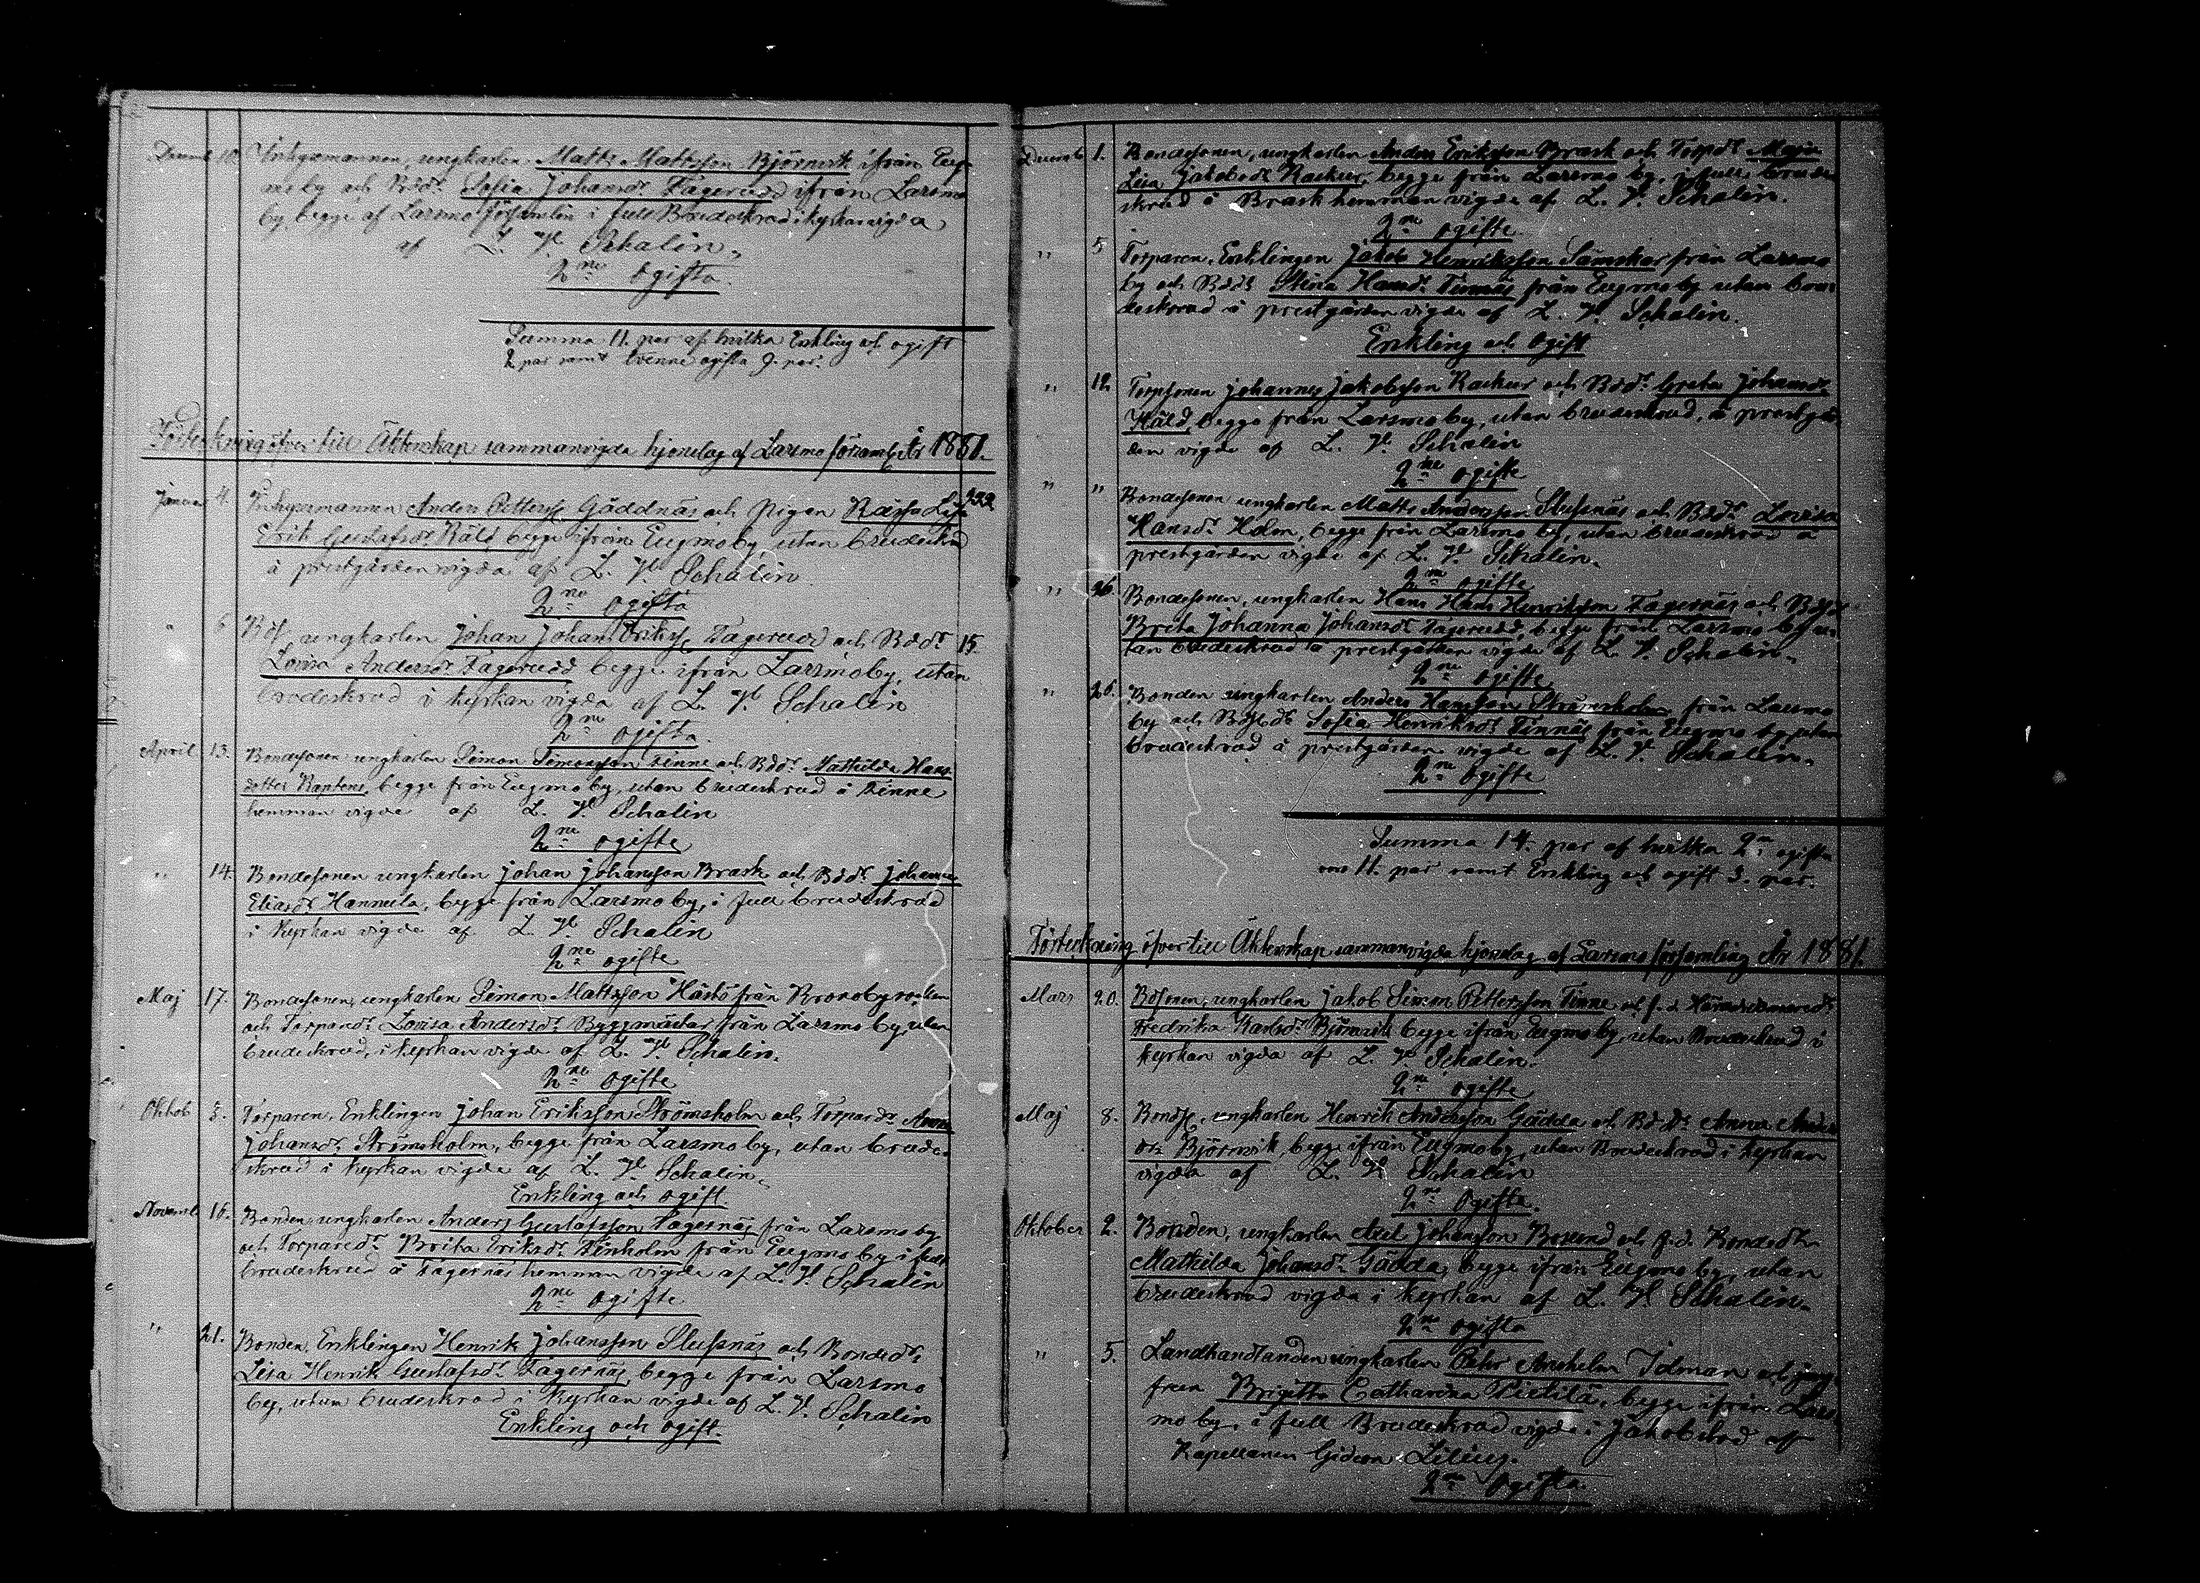 Decemb 10. Inhysesmannen, ungkarlen Matts Mattsson Björnvik ifrån Eug-
mo by och Bdr. Sofia Johansdr Fagerudd ifrån Larsmo
by, begge af Larsmo församlin i full Brudeskrud i kyrkan vigda
af L. W. Schalin.
2ne ogifta.
Summa 11. par af hvilka Enkling och ogift
2 par samt tvenne ogifta 9. par.
Förteckning öfver till Äktenskap sammanvigda hjonelag af Larsmo församl. År 1880.
Januari 4. Inhysesmannen Anders Petterss. Gäddnäs och Pigan Kajsa Lisa 222
Erik Gustafsdr Käld begge ifrån Eugmo by utan brudeskrud
å prestgården vigda af L. W. Schalin.
2ne ogifta
" 6 Bds. ungkarlen Johan Johan Erikss. Fagerudd och Bddr 15.
Lovisa Andersdr Fagerudd begge ifrån Larsmo by, utan
brudeskrud i kyrkan vigda af L. W. Schalin
2ne ogifta.
April 13. Bondesonen ungkarlen Simon Simonsson Finne och Bddr. Mathilda Hans-
dotter Kaptens, begge från Eugmo by, utan brudeskrud å Finne
hemman vigde af L. W. Schalin
2ne ogifte
" 14. Bondesonen ungkarlen Johan Johansson Brask och Bddr Johanna
Eliasdr Hannula, begge från Larsmo by, i full brudeskrud
i Kyrkan vigde af L. W. Schalin
2ne ogifte
Maj 17. Bondesonen, ungkarlen Simon Mattsson Hästö från Kronoby socken
och Torparedr Lovisa Andersdr Byggmästar från Larsmo by, utan
brudeskrud, i kyrkan vigde af L. W. Schalin.
2ne ogifte
Oktob 3. Torparen, Enklingen Johan Eriksson Strömsholm och Torparedr Anna
Johansdr Strömsholm, begge från Larsmo by, utan brude-
skrud i kyrkan vigde af L. W. Schalin.
Enkling och ogift.
Novemb 16. Bonden, ungkarlen Anders Gustafsson Fagernäs från Larsmo by
och Torparedr Brita Eriksdr Finholm från Eugmo by i full
brudeskrud å Fagernäs hemman vigde af L. W. Schalin
2ne ogifte
" 21. Bonden, Enklingen Henrik Johansson Slussnäs och Bondedr
Lisa Henrik Gustafsdr Fagernäs begge från Larsmo
by, utan brudeskrud i Kyrkan vigde af L. W. Schalin
Enkling och ogift.
Decemb 1. Bondesonen, ungkarlen Anders Eriksson Brask och Torpdr Maja
Lisa Jakobsdr Kackur, begge från Larsmo by, i full brude-
skrud å Brask hemman vigde af L. W. Schalin.
2ne ogifte.
" 5 Torparen, Enklingen Jakob Henriksson Sämskar från Larsmo
by och Bddr Stina Hansdr Finnäs från Eugmo by utan bru-
deskrud å prestgården vigde af L. W. Schalin.
Enkling och ogift
" 12. Torpsonen Johannes Jakobsson Kackur och Bddr. Greta Johansdr
Käld, begge från Larsmo by, utan brudeskrud, å prestgår-
den vigde af L. W. Schalin
2ne ogifte
" " Bondesonen ungkarlen Matts Andersson Slussnäs och Bddr. Lovisa
Hansdr Holm, begge från Larsmo by, utan brudeskrud å
prestgården vigde af L. W. Schalin.
2ne ogifte
" 26. Bondesonen, ungkarlen Hans Hans Henriksson Fagernäs och
Brita Johanna Johansdr Fagerudd, begge från Larsmo by u-
tan brudeskrud å prestgården vigde af L. W. Schalin.
2ne ogifte
" 26. Bonden ungkarlen Anders Hansson Strömsholm från Larsmo
by och Sofia Henriksdr Finnäs från Eugmo by utan
brudeskrud å prestgården vigde af L. W. Schalin.
2ne ogifte
Summa 14. par af hvilka 2ne ogifta
11. par samt Enkling och ogift 3. par.
Förteckning öfver till Äktenskap sammanvigda hjonelag af Larsmo församling År 1881.
Mars 20. Bdsonen, ungkarlen Jakob Simon Pettersson Finne och f.d. Hemmansdr
Fredrika Karlsdr Björnvik begge ifrån Eugmo by, utan Brudeskrud i
kyrkan vigda af L. W. Schalin.
2ne ogifte
Maj 8. Bonds, ungkarlen Henrik Andersson Gädda och Bddr Anna Anders-
dr Björnvik, begge ifrån Eugmo by, utan Brudeskrud i kyrkan
vigda af L. W. Schalin
2ne ogifta.
Oktober 2. Bonden, ungkarlen Axel Johansson Bosund och f.d. Bondedtr
Mathilda Johansdr Gädda, begge ifrån Eugmo by, utan
brudeskrud vigda i kyrkan af L. W. Schalin.
2ne ogifta
" 5. Landthandlanden ungkarlen Petter Anshelm Idman och jung-
frun Brigitta Catharina Pietilä, begge ifrån Lars-
mo by, i full Brudeskrud vigde i Jakobstad af
Kapellanen Gideon Lilius.
2ne ogifta.